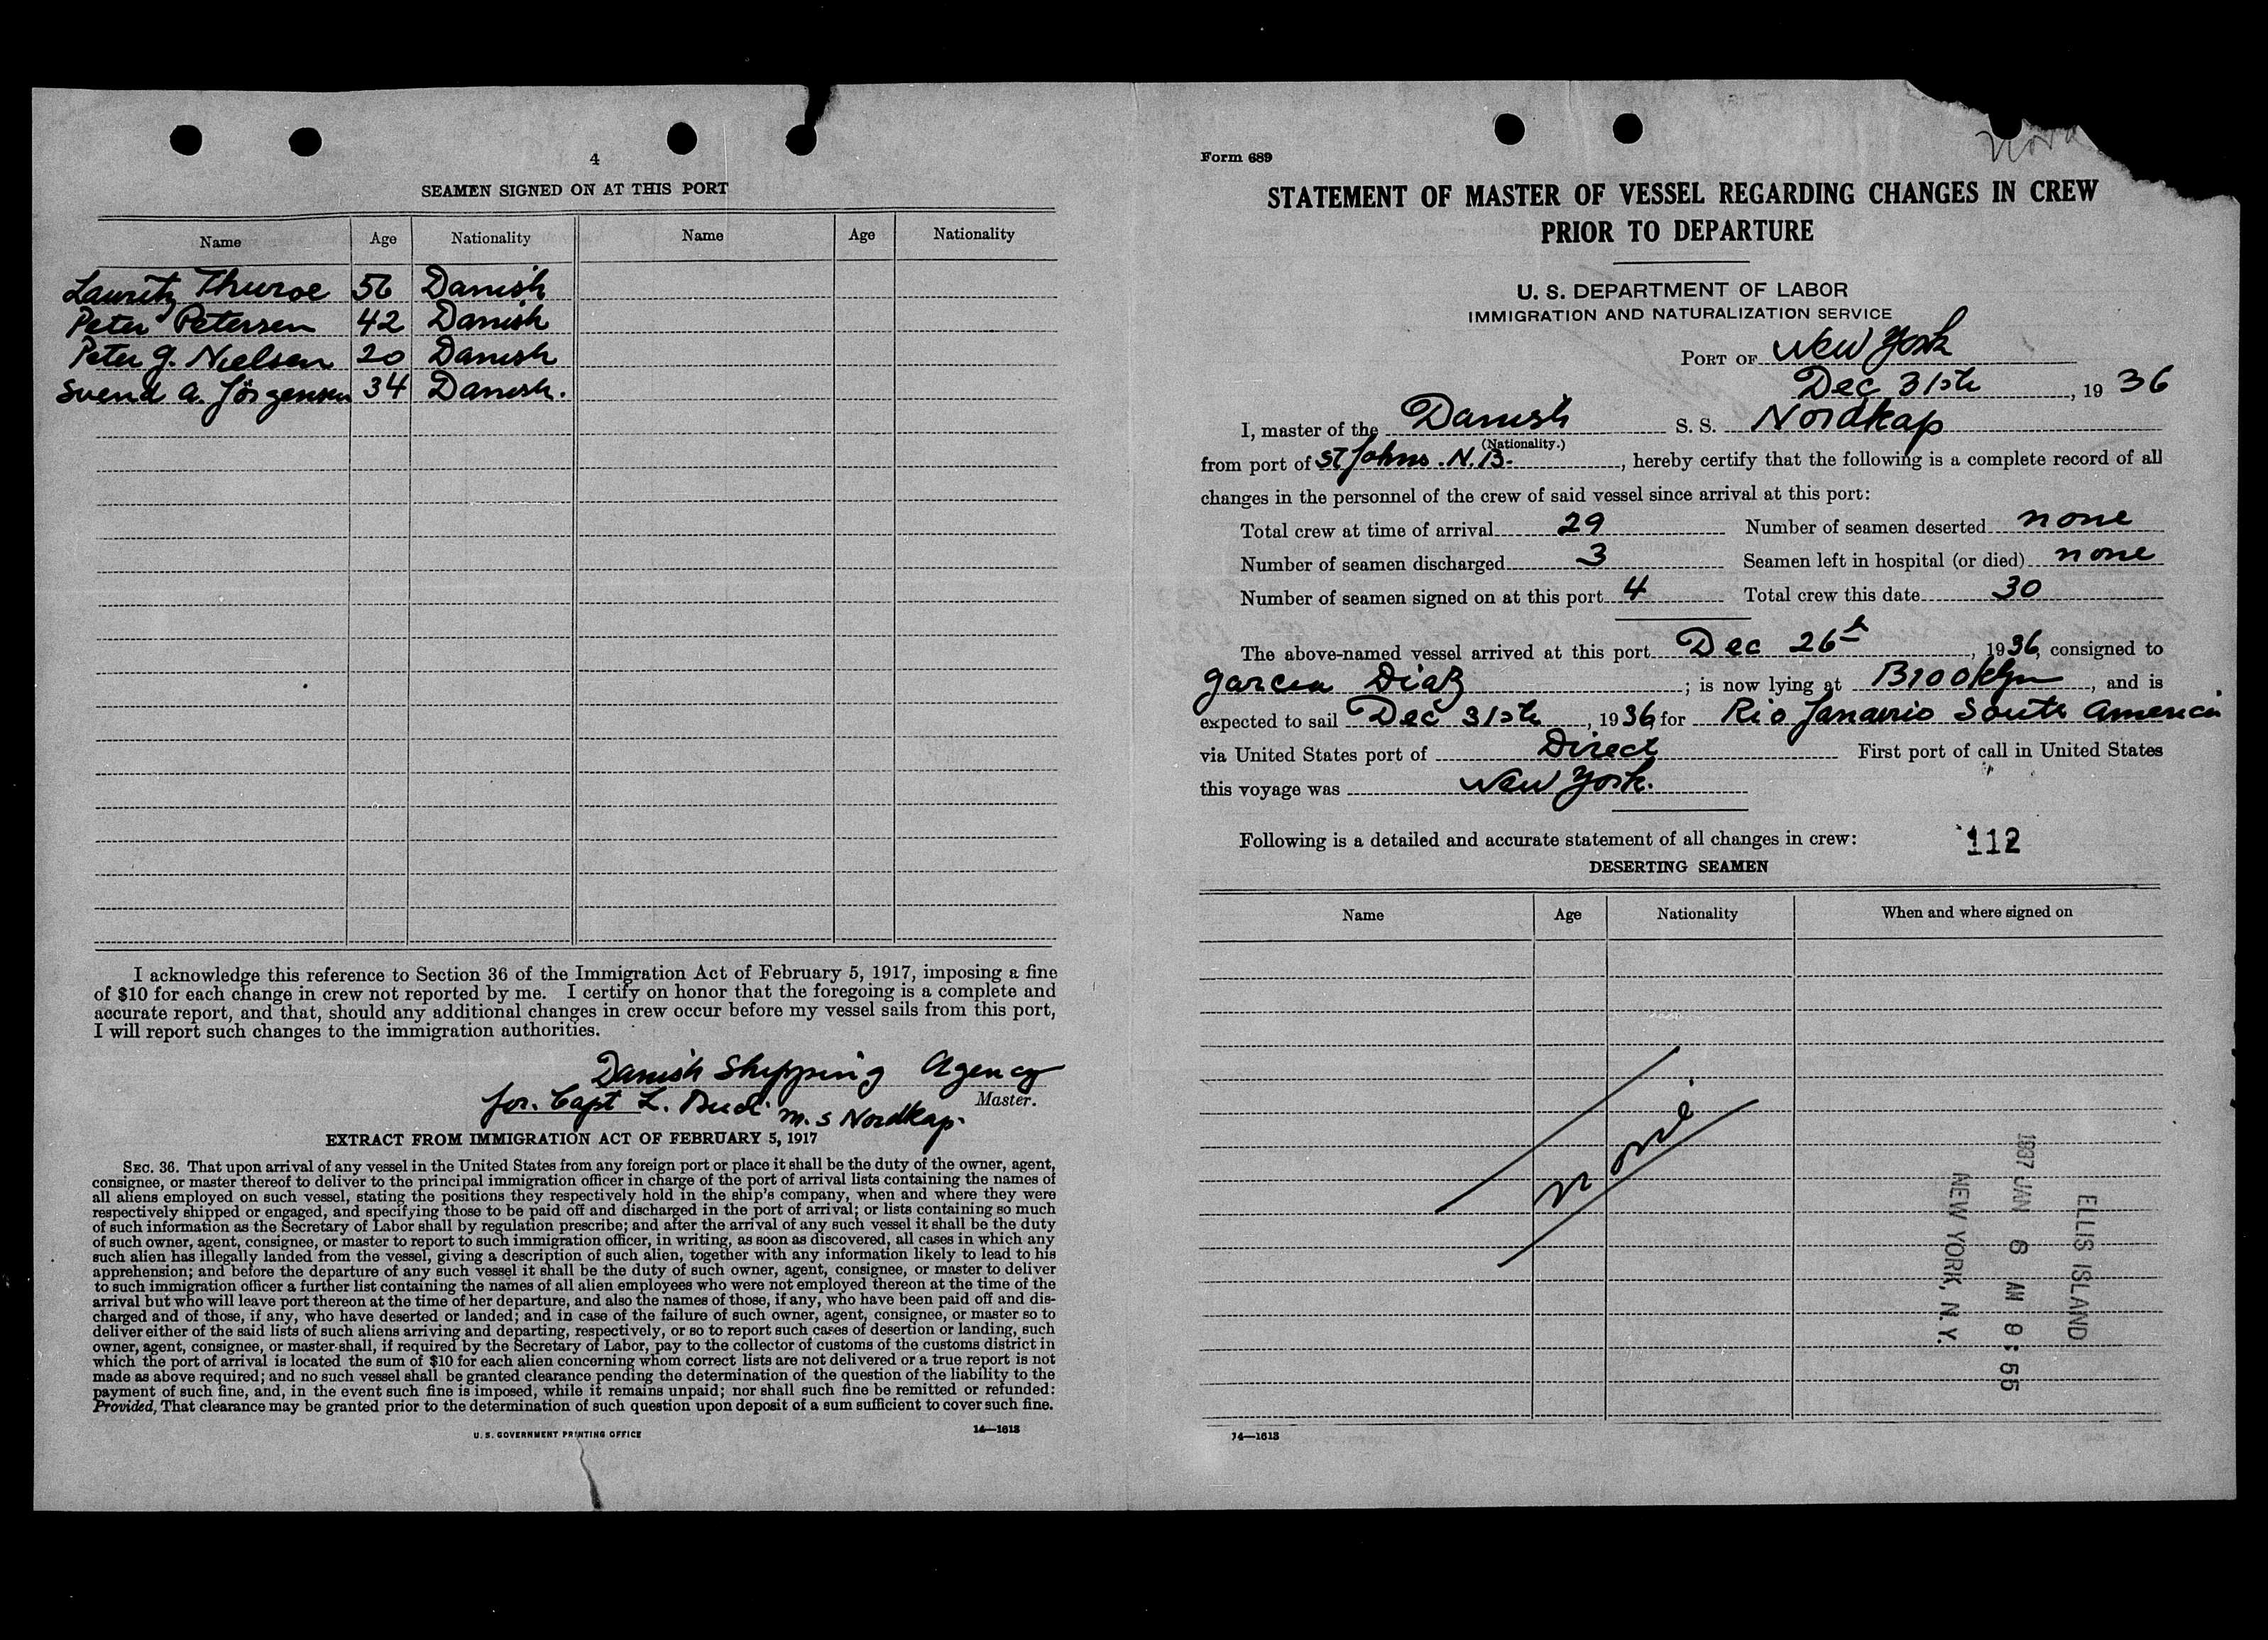 4
SEAMEN SIGNED ON AT THIS PORT
Name Age Nationality Name Age Nationality
Lauritz Thuroe 56 Danish
Peter Petersen 42 Danish
Peter G. Nielsen 20 Danish
Svend A. Jörgensen 34 Danish.
I acknowledge this reference to Section 36 of the Immigration Act of February 5, 1917, imposing a fine
of $10 for each change in crew not reported by me. I certify on honor that the foregoing is a complete and
accurate report, and that, should any additional changes in crew occur before my vessel sails from this port,
I will report such changes to the immigration authorities.
Danish Shipping Agency
for. Capt L. M.S Nordkap.
Master.
EXTRACT FROM IMMIGRATION ACT OF FEBRUARY 5, 1917
SEC. 36. That upon arrival of any vessel in the United States from any foreign port or place it shall be the duty of the owner, agent,
consignee, or master thereof to deliver to the principal immigration officer in charge of the port of arrival lists containing the names of
all aliens employed on such vessel, stating the positions they respectively hold in the ship's company, when and where they were
respectively shipped or engaged, and specifying those to be paid off and discharged in the port of arrival; or lists containing so much
of such information as the Secretary of Labor shall by regulation prescribe; and after the arrival of any such vessel it shall be the duty
of such owner, agent, consignee, or master to report to such immigration officer, in writing, as soon as discovered, all cases in which any
such alien has illegally landed from the vessel, giving a description of such alien, together with any information likely to lead to his
apprehension; and before the departure of any such vessel it shall be the duty of such owner, agent, consignee, or master to deliver
to such immigration officer a further list containing the names of all alien employees who were not employed thereon at the time of the
arrival but who will leave port thereon at the time of her departure, and also the names of those, if any, who have been paid off and dis-
charged and of those, if any, who have deserted or landed; and in case of the failure of such owner, agent, consignee, or master so to
deliver either of the said lists of such aliens arriving and departing, respectively, or so to report such cases of desertion or landing, such
owner, agent, consignee, or master shall, if required by the Secretary of Labor, pay to the collector of customs of the customs district in
which the port of arrival is located the sum of $10 for each alien concerning whom correct lists are not delivered or a true report is not
made as above required; and no such vessel shall be granted clearance pending the determination of the question of the liability to the
payment of such fine, and, in the event such fine is imposed, while it remains unpaid; nor shall such fine be remitted or refunded:
Provided, That clearance may be granted prior to the determination of such question upon deposit of a sum sufficient to cover such fine.
U. S. GOVERNMENT PRINTING OFFICE 14—1613
Form 689
STATEMENT OF MASTER OF VESSEL REGARDING CHANGES IN CREW
PRIOR TO DEPARTURE
U. S. DEPARTMENT OF LABOR
IMMIGRATION AND NATURALIZATION SERVICE
PORT OF New York
Dec 31st, 1936
I, master of the Danish S. S. Nordkap
(Nationality.)
from port of St Johns. N.B., hereby certify that the following is a complete record of all
changes in the personnel of the crew of said vessel since arrival at this port:
Total crew at time of arrival 29 Number of seamen deserted none
Number of seamen discharged 3 Seamen left in hospital (or died) none
Number of seamen signed on at this port 4 Total crew this date 30
The above-named vessel arrived at this port Dec 26th, 1936, consigned to
Garcia Diaz; is now lying at Brooklyn, and is
expected to sail Dec 31st, 1936, for Rio Janairio South America
via United States port of Direct First port of call in United States
this voyage was New York.
Following is a detailed and accurate statement of all changes in crew:
112
DESERTING SEAMEN
Name Age Nationality When and where signed on
none
ELLIS ISLAND
1937 JAN 6 AM 9:55
NEW YORK, N. Y.
14—1613